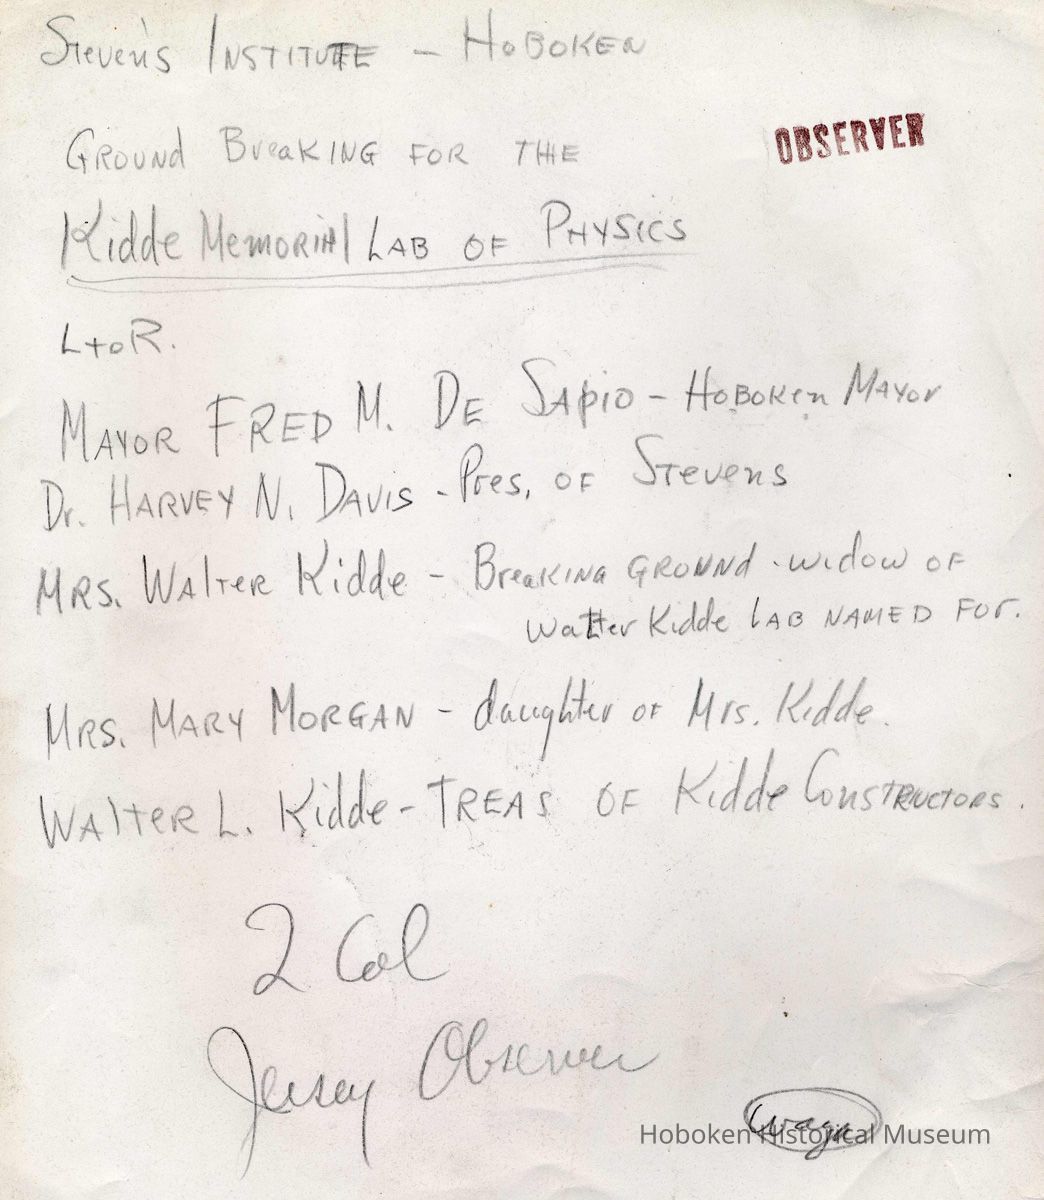 Steven's INSTITUTE - HOBOKEN
GROUND BreaKING FOR THE
OBSERVER
Kidde MEMORIAl LAB OF PHYSICS
L to R.
MAYOR FRED M. DE SApiO - HOBOKEn MAYOr
Dr. HARVEY N. DAVIS - Pres. OF STevenS
MRS. WAlTER Kidde - BreaKING GROUNd - widow OF
Walter Kidde LAB NAMED FOr.
MRS. MARY MORGAN - daughter OF Mrs. Kidde.
WAlTER L. Kidde - TREAS OF Kidde ConsTRUCTORS.
2 Col
Jersey Observer
Hoboken Historical Museum